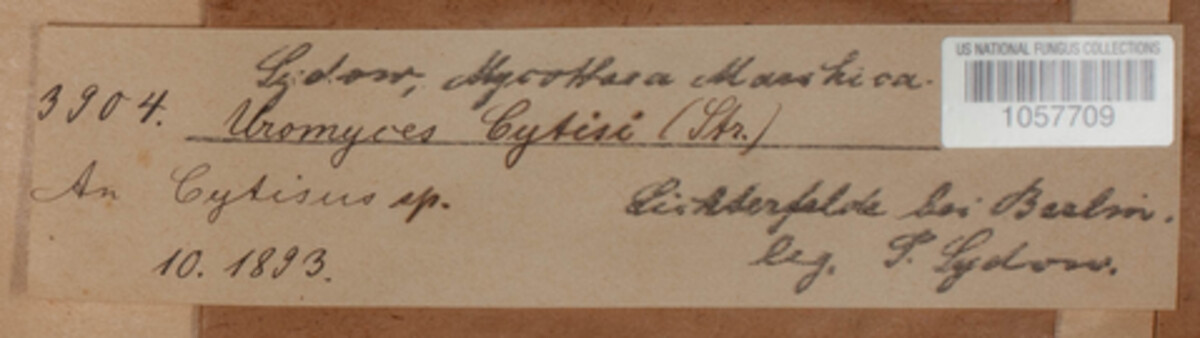 Sydow, Mycotheca Marchica.
US NATIONAL FUNGUS COLLECTIONS
1057709
3904. Uromyces Cytisi (Str.)
An Cytisus sp. Lichterfelde bei Berlin.
10. 1893. leg. P. Sydow.